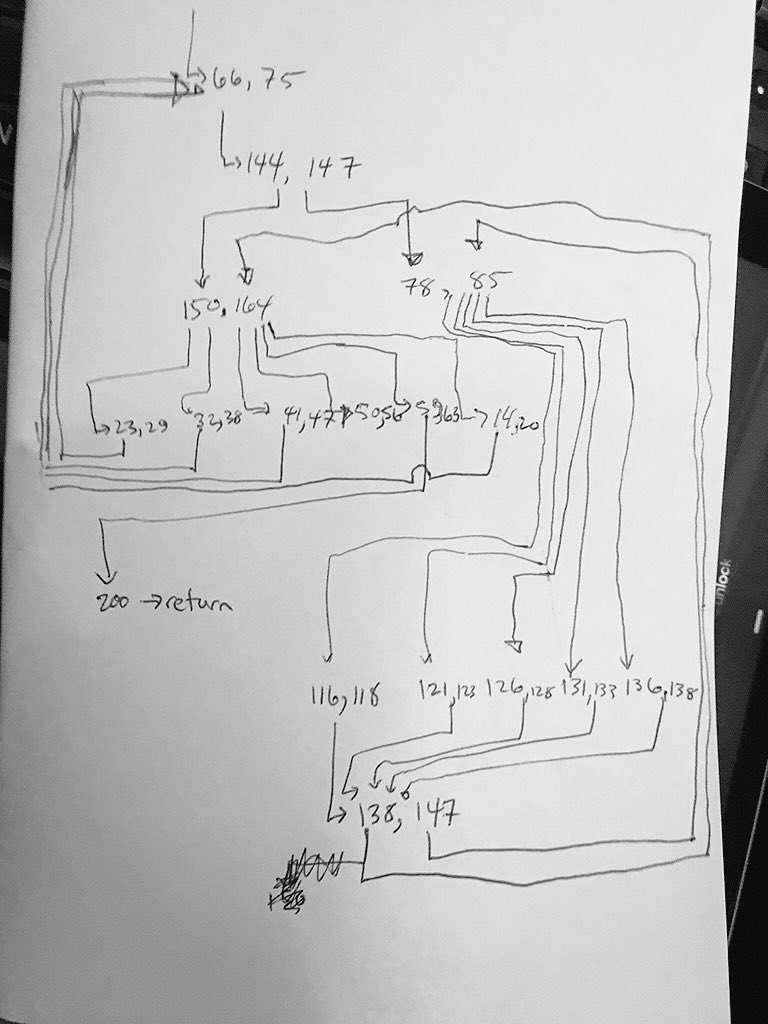 66, 75
144, 147
78, 85
150, 164
23, 29 32, 38 41, 47 50, 56 59, 63 14, 20
200 → return
116, 118 121, 123 126, 128 131, 133 136, 138
138, 147
unlock